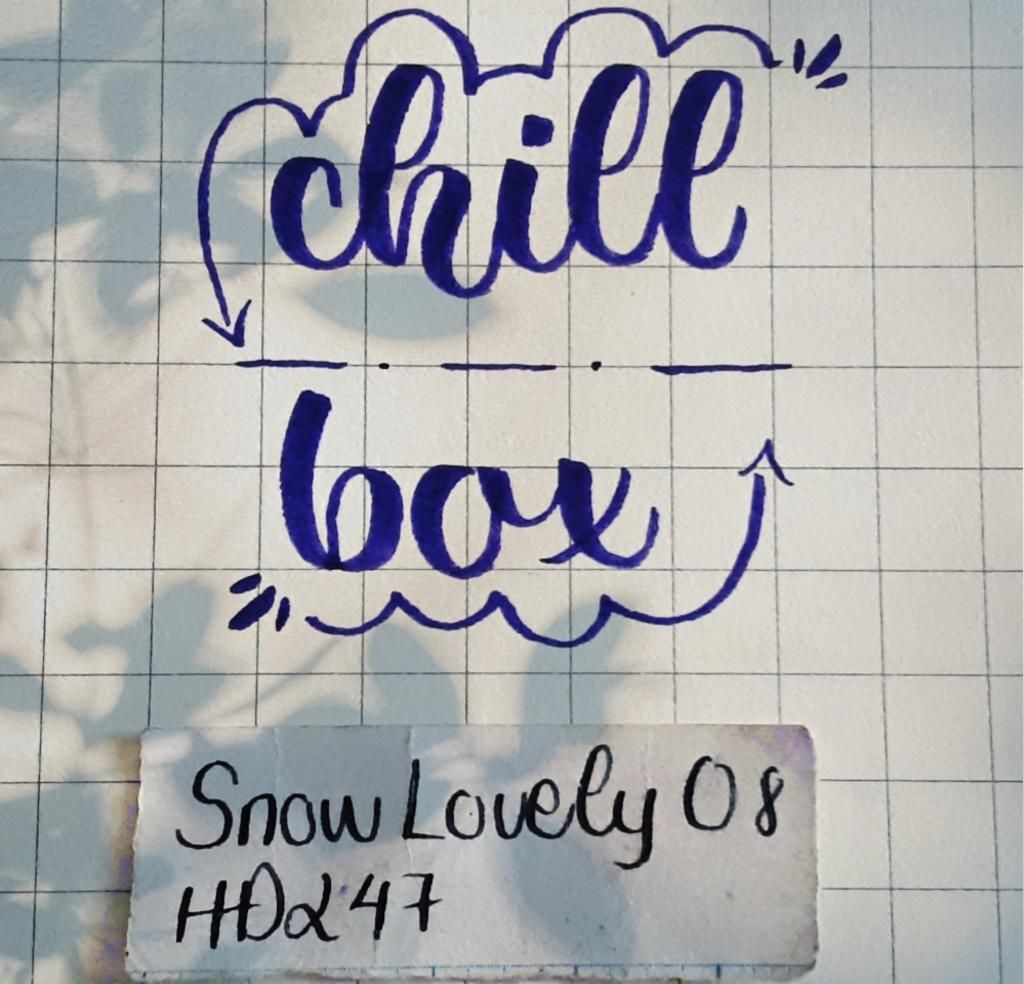 chill
box
Snow Lovely 08
HD247